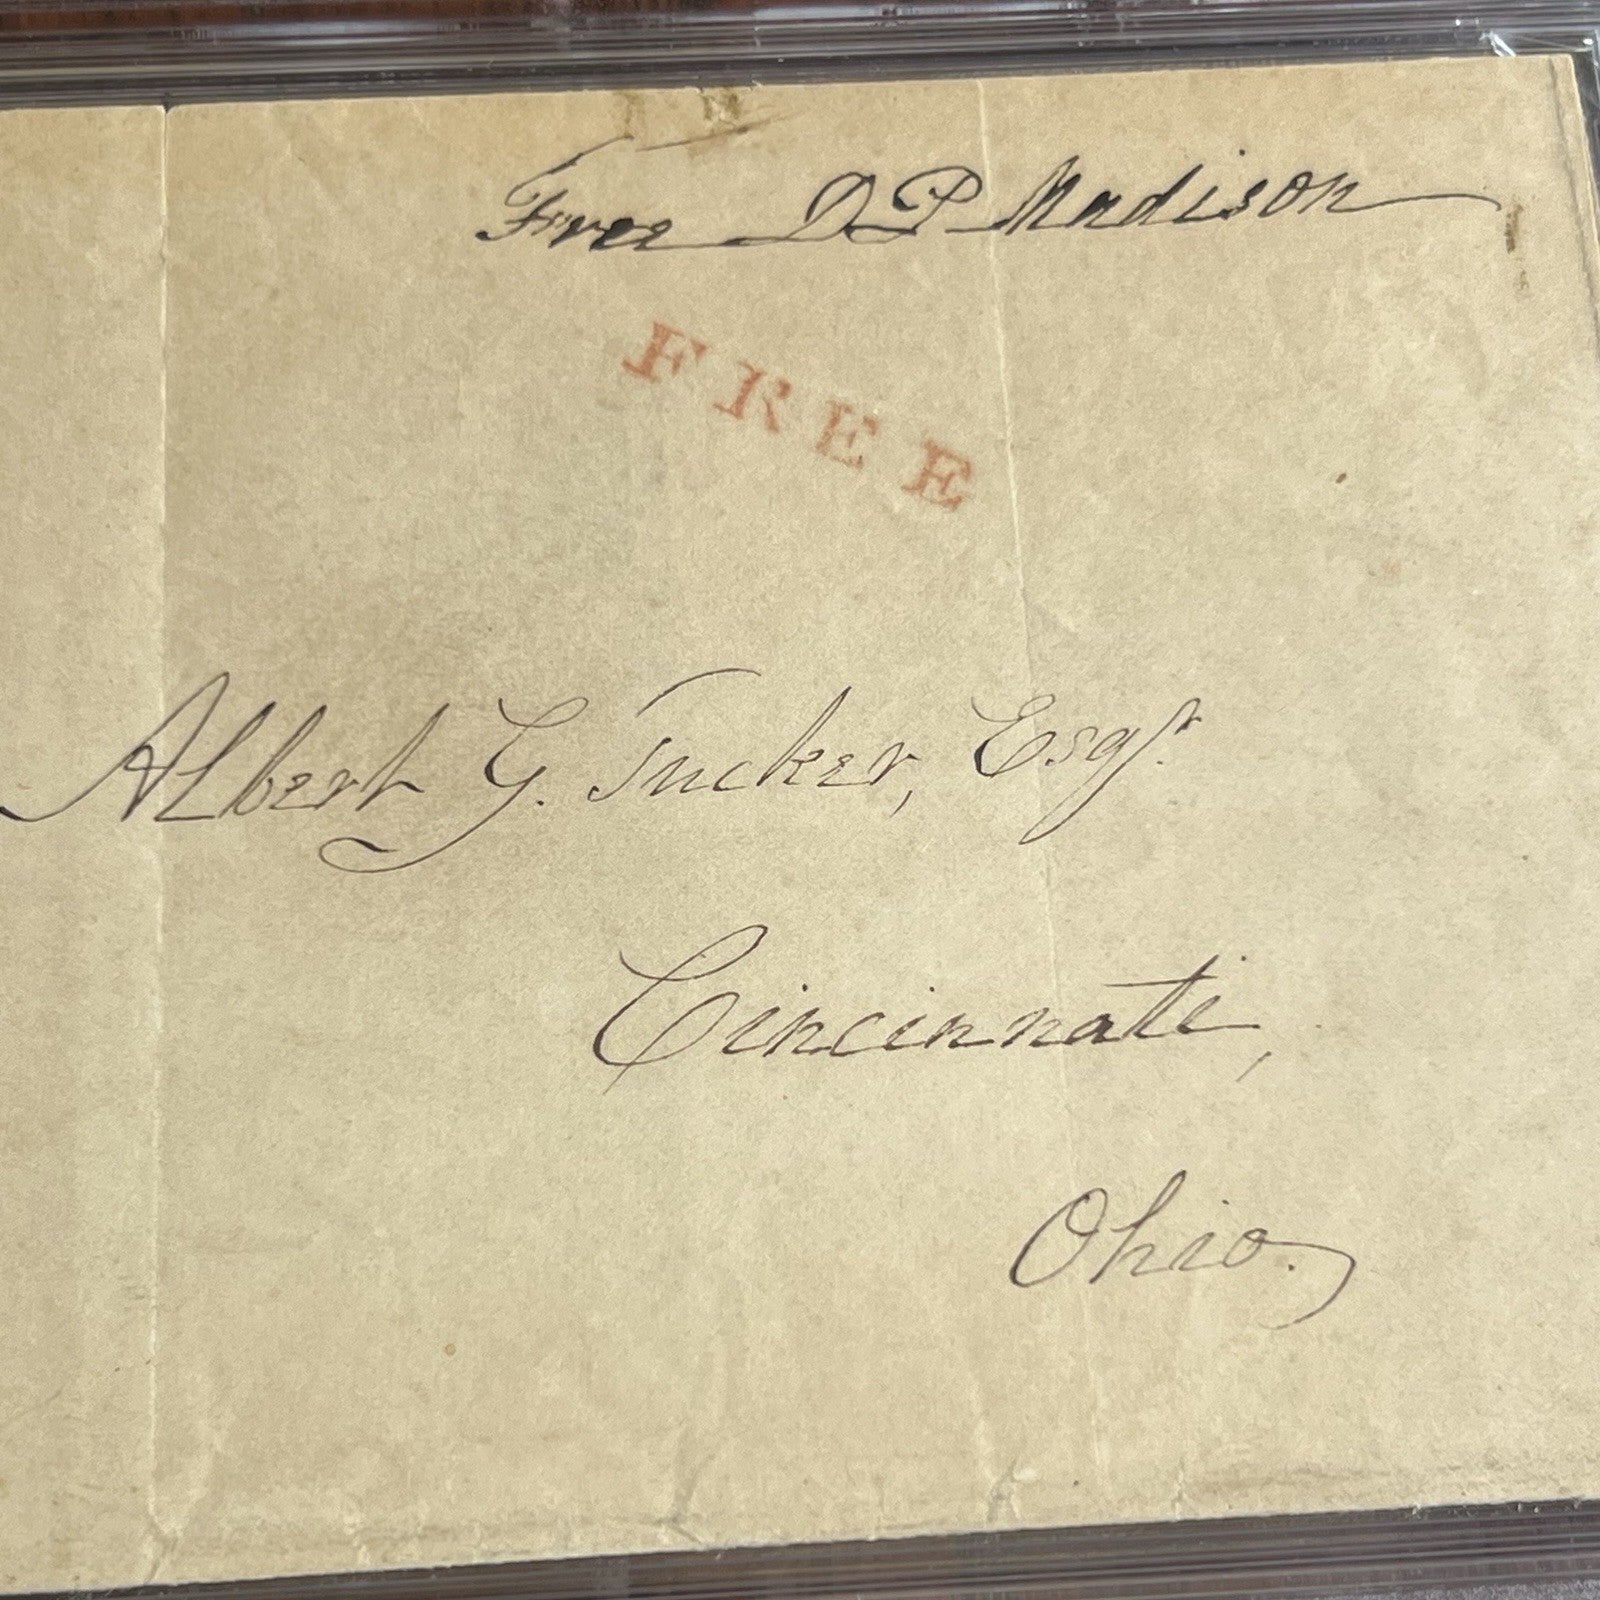 Free D P Madison
FREE
Albert G. Tucker, Esqr.
Cincinnati,
Ohio.